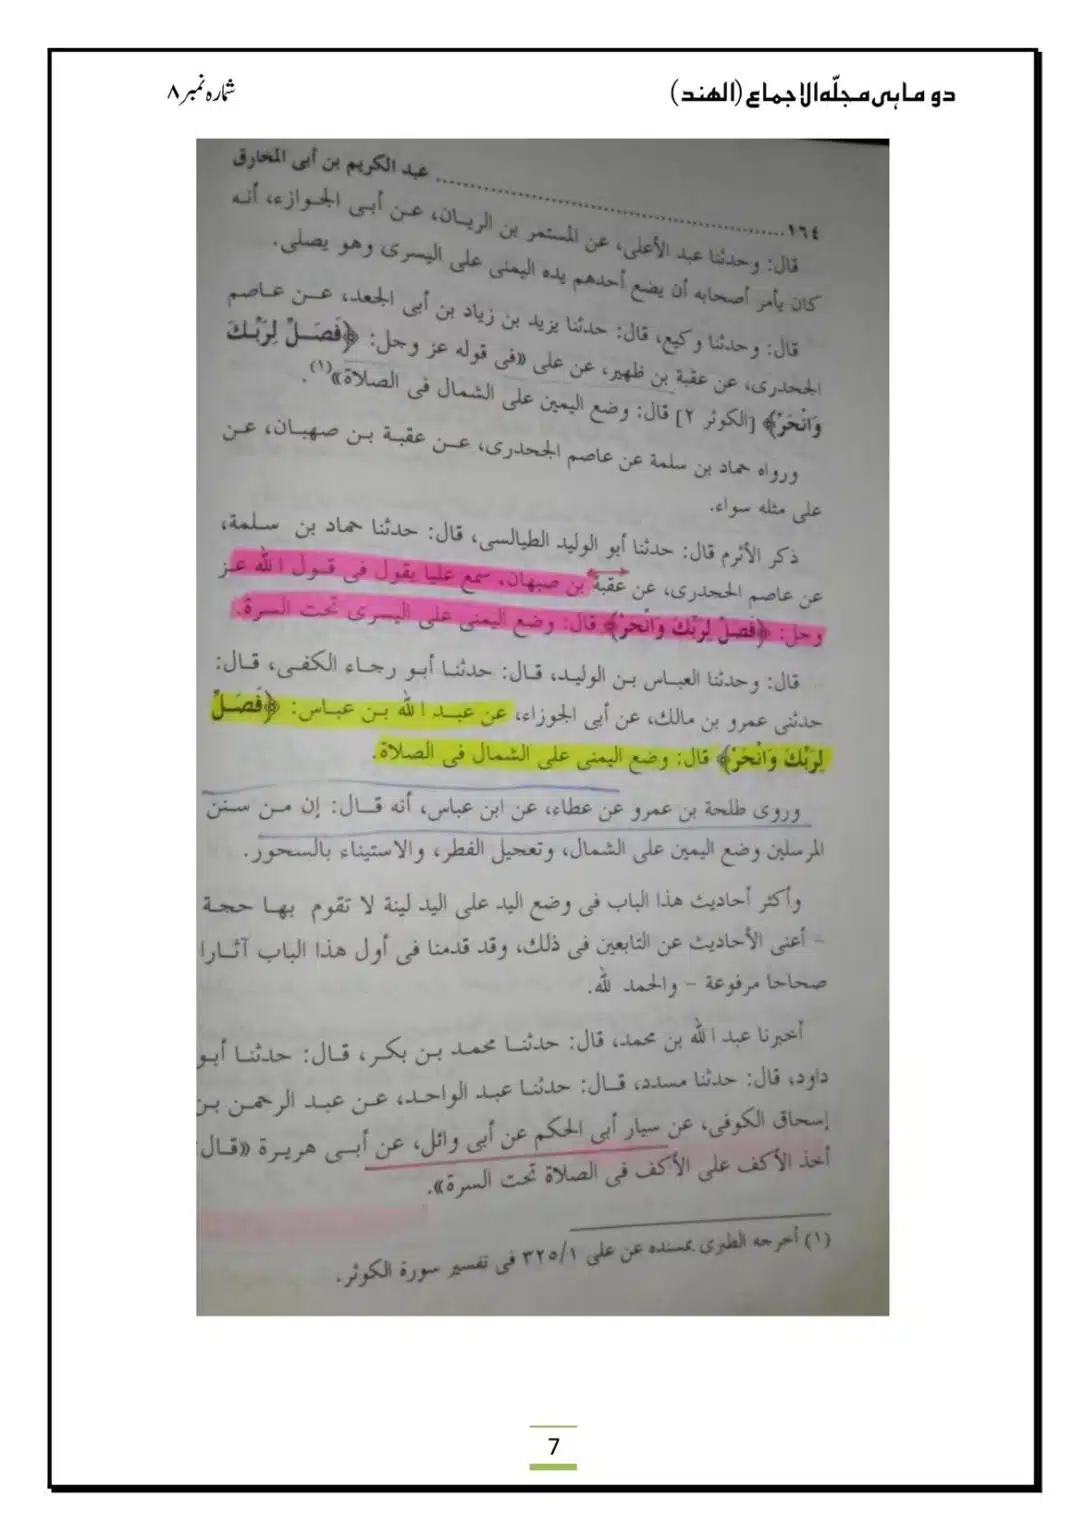 دو ماہی مجلّہ الاجماع (الھند)
شمارہ نمبر ۸
١٦٤ ........ عبد الكريم بن أبى المخارق
قال: وحدثنا عبد الأعلى، عن المستمر بن الريان، عن أبى الجوازء، أنه
كان يأمر أصحابه أن يضع أحدهم يده اليمنى على اليسرى وهو يصلى.
قال: وحدثنا وكيع، قال: حدثنا يزيد بن زياد بن أبى الجعد، عن عاصم
الجحدرى، عن عقبة بن ظهير، عن على «فى قوله عز وجل: ﴿فَصَلِّ لِرَبِّكَ
وَانْحَرْ﴾ [الكوثر ٢] قال: وضع اليمين على الشمال فى الصلاة»(١).
ورواه حماد بن سلمة عن عاصم الجحدرى، عن عقبة بن صهبان، عن
على مثله سواء.
ذكر الأثرم قال: حدثنا أبو الوليد الطيالسى، قال: حدثنا حماد بن سلمة،
عن عاصم الجحدرى، عن عقبة بن صبهان، سمع عليا يقول فى قول الله عز
وجل: ﴿فَصَلِّ لِرَبِّكَ وَانْحَرْ﴾ قال: وضع اليمنى على اليسرى تحت السرة.
قال: وحدثنا العباس بن الوليد، قال: حدثنا أبو رجاء الكفى، قال:
حدثنى عمرو بن مالك، عن أبى الجوزاء، عن عبد الله بن عباس: ﴿فَصَلِّ
لِرَبِّكَ وَانْحَرْ﴾ قال: وضع اليمنى على الشمال فى الصلاة.
وروى طلحة بن عمرو عن عطاء، عن ابن عباس، أنه قال: إن من سنن
المرسلين وضع اليمين على الشمال، وتعجيل الفطر، والاستيناء بالسحور.
وأكثر أحاديث هذا الباب فى وضع اليد على اليد لينة لا تقوم بها حجة
- أعنى الأحاديث عن التابعين فى ذلك، وقد قدمنا فى أول هذا الباب آثارا
صحاحا مرفوعة - والحمد لله.
أخبرنا عبد الله بن محمد، قال: حدثنا محمد بن بكر، قال: حدثنا أبو
داود، قال: حدثنا مسدد، قال: حدثنا عبد الواحد، عن عبد الرحمن بن
إسحاق الكوفى، عن سيار أبى الحكم عن أبى وائل، عن أبى هريرة «قال:
أخذ الأكف على الأكف فى الصلاة تحت السرة».
(١) أخرجه الطبرى بمسنده عن على ٣٢٥/١ فى تفسير سورة الكوثر.
7